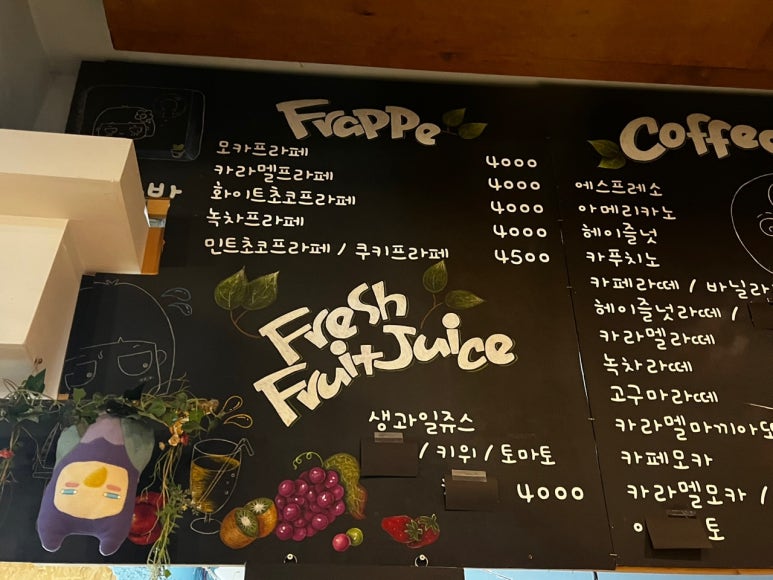 Frappe
모카프라페 4000
카라멜프라페 4000
화이트초코프라페 4000
녹차프라페 4000
민트초코프라페 / 쿠키프라페 4500
Fresh
Fruit Juice
생과일쥬스
/ 키위 / 토마토
4000
Coffee
에스프레소
아메리카노
헤이즐넛
카푸치노
카페라떼 / 바닐라
헤이즐넛라떼 /
카라멜라떼
녹차라떼
고구마라떼
카라멜마끼아또
카페모카
카라멜모카 /
토